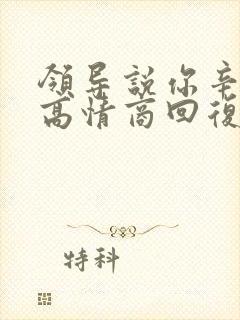 領导説你辛
高情商回復
特科